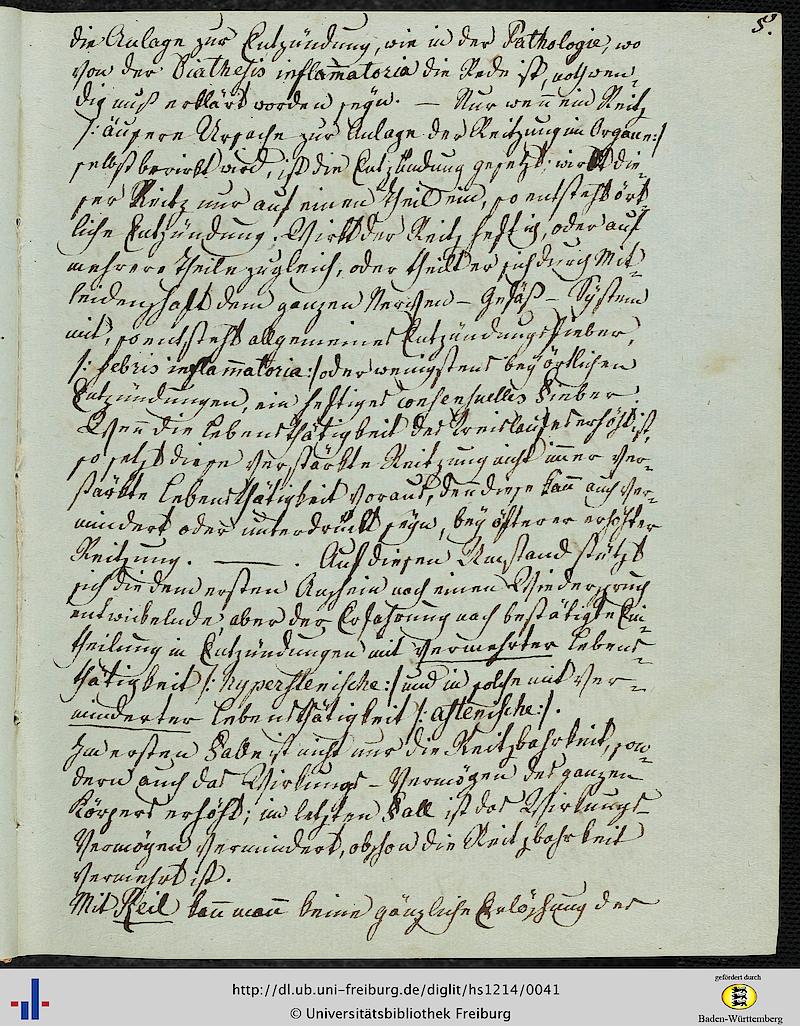 5.
die Anlage zur Entzündung, wie in der Pathologie, wo
von der Diathesis inflam̅atoria die Rede ist, nothwen-
dig muß erklärt worden seyn. — Nur wen̅ ein Reitz
/: äußere Ursache zur Anlage der Reitzung im Organe :/
selbst bewirkt wird, ist die Entzündung gesetzt; wirkt die-
ser Reitz nur auf einen Theil ein, so entsteht ört-
liche Entzündung. Wirkt der Reitz heftig, oder auf
mehrere Theile zugleich, oder theilt er sich durch Mit-
leidenschaft dem ganzen Nerven – Gefäß – System
mit, so entsteht allgemeines Entzündungsfieber,
/: febris inflam̅atoria :/ oder wenigstens bey örtlichen
Entzündungen, ein heftiges consensuelles Fieber.
Wen̅ die Lebensthätigkeit des Kreislaufes erhöht ist,
so setzt diese verstärkte Reitzung nicht im̅er ver-
stärkte Lebensthätigkeit voraus, den̅ diese kan̅ auch ver-
mindert oder unterdrückt seyn, bey öfterer erhöhter
Reitzung. ——. Auf diesen Umstand stützt
sich die dem ersten Anschein nach einen Wiederspruch
entwickelnde aber der Erfahrung nach bestätigte Ein-
theilung in Entzündungen mit vermehrter Lebens-
thätigkeit /: hyperstenische :/ und in solche mit ver-
minderter Lebensthätigkeit /: astenische :/.
Im ersten Falle ist nicht nur die Reitzbahrkeit, son-
dern auch das Wirkungs – Vermögen des ganzen
Körpers erhöht; im letzten Fall ist das Wirkungs-
Vermögen vermindert, obschon die Reitzbahrkeit
vermehrt ist.
Mit Reil kan̅ man̅ keine gänzliche Erlöschung der
http://dl.ub.uni-freiburg.de/diglit/hs1214/0041
© Universitätsbibliothek Freiburg
gefördert durch
Baden-Württemberg